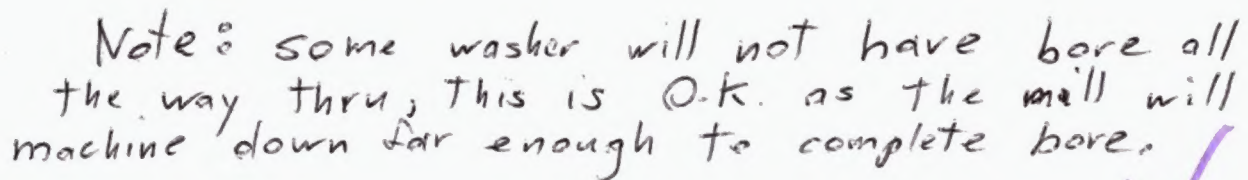 Note: some washer will not have bore all
the way thru, This is O.K. as the mill will
machine down far enough to complete bore.